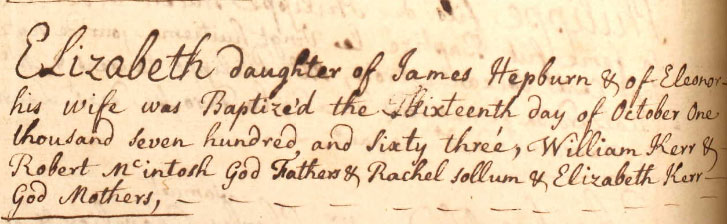 Elizabeth daughter of James Hepburn & of Eleonor
his wife was Baptized the Sixteenth day of October One
thousand seven hundred, and Sixty three, William Kerr &
Robert Mcintosh God Fathers & Rachel sollum & Elizabeth Kerr
God Mothers,